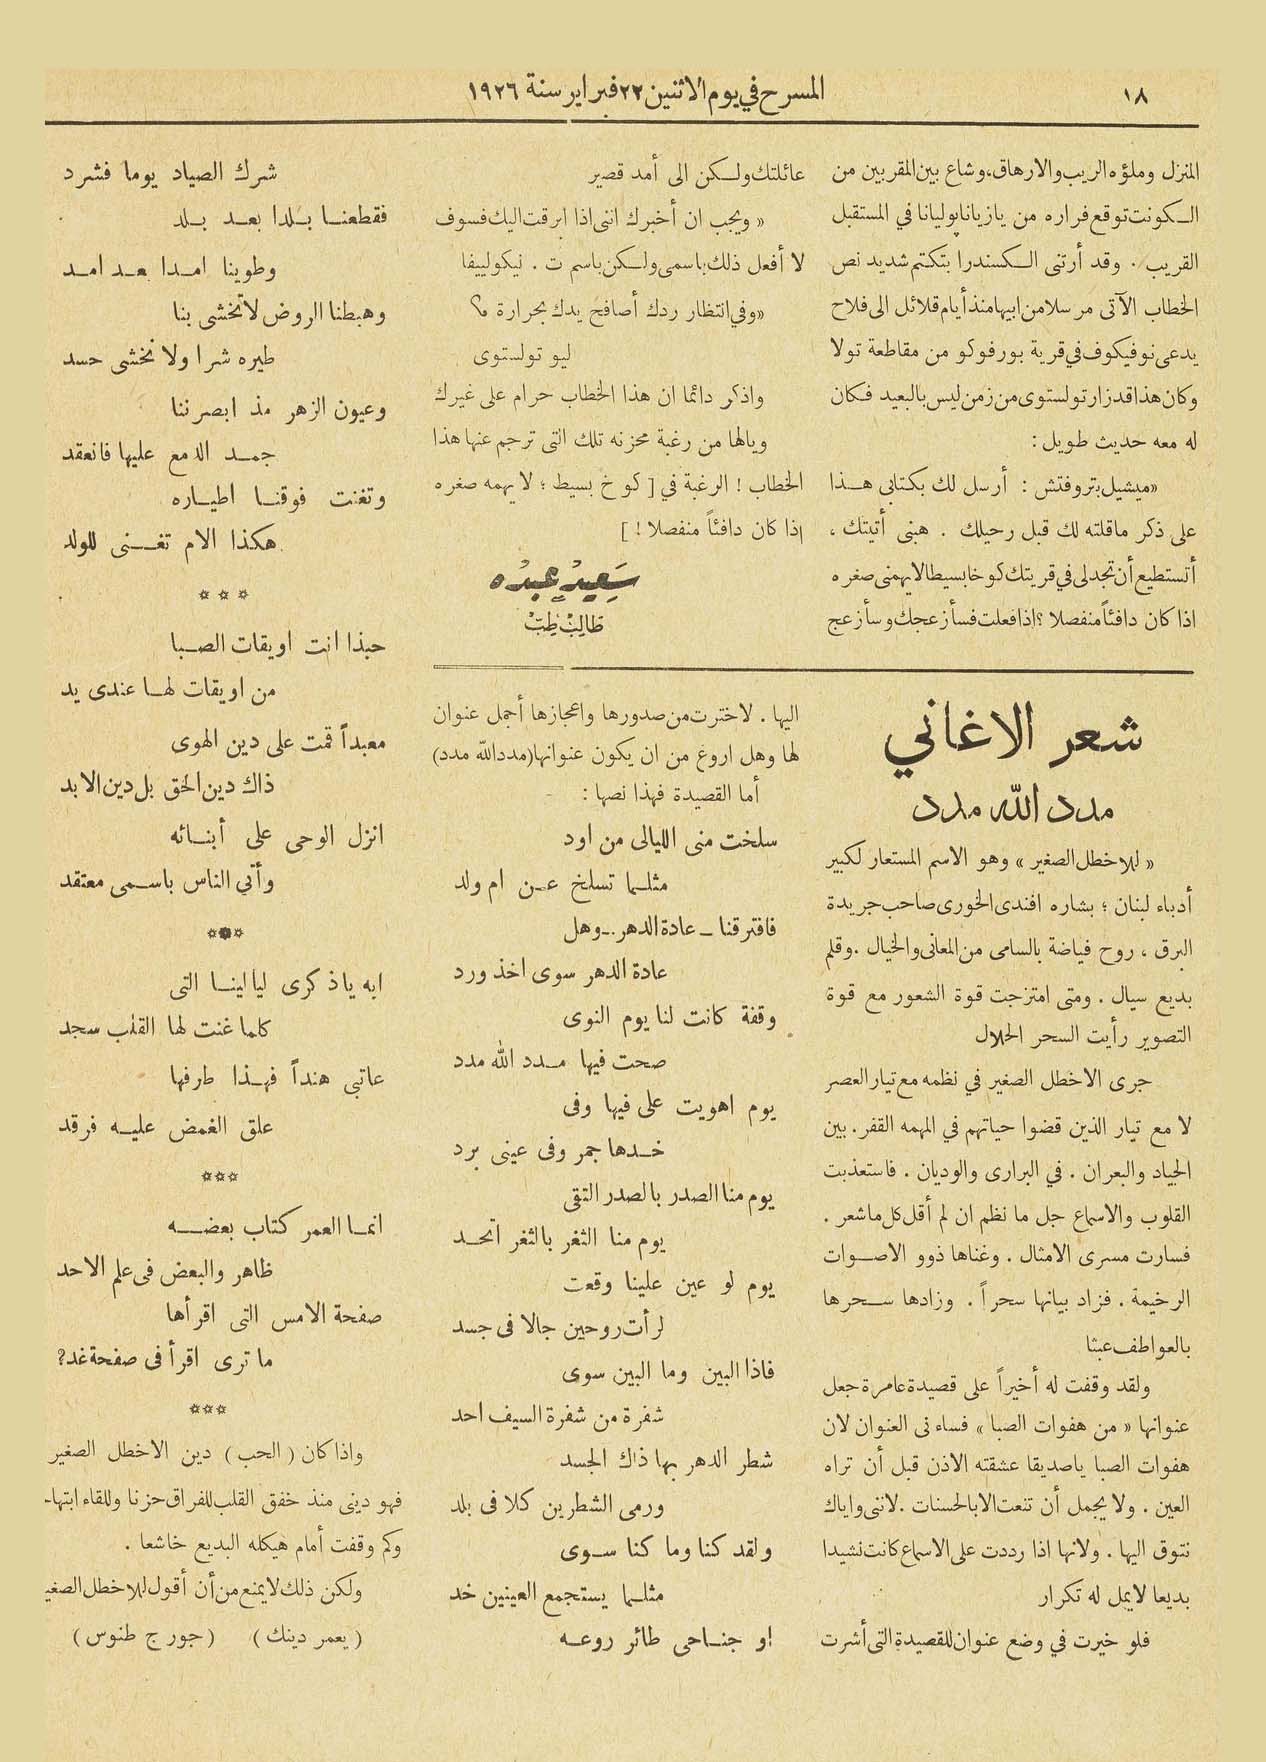 ١٨
المسرح في يوم الاثنين ٢٢ فبراير سنة ١٩٢٦
المنزل وملؤه الريب والارهاق، وشاع بين المقربين من
الكونت توقع فراره من يازيانا پوليانا في المستقبل
القريب . وقد أرتنى الكسندرا بتكتم شديد نص
الخطاب الآتى مرسلا من ابيها منذ أيام قلائل الى فلاح
يدعى نوفيكوف في قرية بورفوكو من مقاطعة تولا
وكان هذا قد زار تولستوى من زمن ليس بالبعيد فكان
له معه حديث طويل :
« ميشيل بتروفتش : أرسل لك بكتابى هذا
على ذكر ماقلته لك قبل رحيلك . هبنى أتيتك ،
أتستطيع أن تجد لى في قريتك كوخا بسيطا لايهمنى صغره
اذا كان دافئاً منفصلا ؟ اذا فعلت فسأزعجك وسأزعج
عائلتك ولكن الى أمد قصير
« ويجب ان أخبرك اننى اذا ابرقت اليك فسوف
لا أفعل ذلك باسمى ولكن باسم ت . نيكولييفا
« وفي انتظار ردك أصافح يدك بحرارة »
ليو تولستوى
واذكر دائما ان هذا الخطاب حرام على غيرك
ويالها من رغبة محزنه تلك التى ترجم عنها هذا
الخطاب ! الرغبة في [ كوخ بسيط ؛ لا يهمه صغره
إذا كان دافئاً منفصلا ! ]
سعيد عبده
طالب طب
شعر الاغاني
مدد الله مدد
« للاخطل الصغير » وهو الاسم المستعار لكبير
أدباء لبنان ؛ بشاره افندى الخورى صاحب جريدة
البرق ، روح فياضة بالسامى من المعانى والخيال . وقلم
بديع سيال . ومتى امتزجت قوة الشعور مع قوة
التصوير رأيت السحر الحلال
جرى الاخطل الصغير في نظمه مع تيار العصر
لا مع تيار الذين قضوا حياتهم في المهمه القفر . بين
الجياد والبعران . في البرارى والوديان . فاستعذبت
القلوب والاسماع جل ما نظم ان لم أقل كل ماشعر .
فسارت مسرى الامثال . وغناها ذوو الاصوات
الرخيمة . فزاد بيانها سحراً . وزادها سحرها
بالعواطف عبثا
ولقد وقفت له أخيراً على قصيدة عامرة جعل
عنوانها « من هفوات الصبا » فساءنى العنوان لان
هفوات الصبا ياصديقا عشقته الاذن قبل أن تراه
العين . ولا يجمل أن تنعت الا بالحسنات . لاننى واياك
نتوق اليها . ولانها اذا رددت على الاسماع كانت نشيدا
بديعا لايمل له تكرار
فلو خيرت في وضع عنوان للقصيدة التى أشرت
اليها . لاخترت من صدورها واعجازها أجمل عنوان
لها وهل اروع من ان يكون عنوانها ( مدد الله مدد )
أما القصيدة فهذا نصها :
سلخت منى الليالى من اود
مثلما تسلخ عن ام ولد
فافترقنا ــ عادة الدهر .. وهل
عادة الدهر سوى اخذ ورد
وقفة كانت لنا يوم النوى
صحت فيها مدد الله مدد
يوم اهويت على فيها وفى
خدها جمر وفى عينى برد
يوم منا الصدر بالصدر التقى
يوم منا الثغر بالثغر اتحد
يوم لو عين علينا وقعت
لرأت روحين جالا فى جسد
فاذا البين وما البين سوى
شفرة من شفرة السيف احد
شطر الدهر بها ذاك الجسد
ورمى الشطرين كلا فى بلد
ولقد كنا وما كنا سوى
مثلما يستجمع العينين خد
او جناحى طائر روعه
شرك الصياد يوما فشرد
فقطعنا بلدا بعد بلد
وطوينا امدا بعد امد
وهبطنا الروض لاتخشى بنا
طيره شرا ولا نخشى حسد
وعيون الزهر مذ ابصرننا
جمد الدمع عليها فانعقد
وتغنت فوقنا اطياره
هكذا الام تغنى للولد
* * *
حبذا انت اويقات الصبا
من اويقات لها عندى يد
معبداً قمت على دين الهوى
ذاك دين الحق بل دين الابد
انزل الوحى على أبنائه
وأتي الناس باسمى معتقد
***
ايه ياذكرى ليالينا التى
كلما غنت لها القلب سجد
عاتبى هنداً فهذا طرفها
علق الغمض عليه فرقد
***
انما العمر كتاب بعضه
ظاهر والبعض فى علم الاحد
صفحة الامس التى اقرأها
ما ترى اقرأ فى صفحة غد؟
***
واذا كان ( الحب ) دين الاخطل الصغير
فهو دينى منذ خفق القلب للفراق حزنا وللقاء ابتها-
وكم وقفت أمام هيكله البديع خاشعا .
ولكن ذلك لايمنع من أن أقول للاخطل الصغير
( يعمر دينك ) ( جورج طنوس )